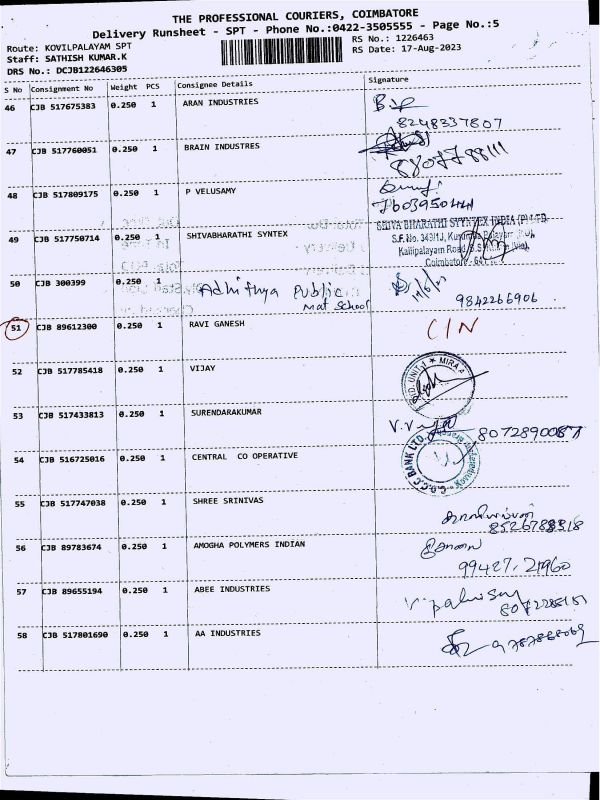 THE PROFESSIONAL COURIERS, COIMBATORE
Delivery Runsheet - SPT - Phone No.:0422-3505555 - Page No.:5
Route: KOVILPALAYAM SPT
Staff: SATHISH KUMAR.K
DRS No.: DCJB122646305
RS No.: 1226463
RS Date: 17-Aug-2023
S No Consignment No Weight PCS Consignee Details Signature
46 CJB 517675383 0.250 1 ARAN INDUSTRIES
8248337807
47 CJB 517760051 0.250 1 BRAIN INDUSTRES
8807788111
48 CJB 517809175 0.250 1 P VELUSAMY
49 CJB 517750714 0.250 1 SHIVABHARATHI SYNTEX
SHIVA BHARATHI SYNTEX INDIA (P) LTD.
S.F.No. 349/1J,
Kallipalayam Road,
Coimbatore
50 CJB 300399 0.250 1 Adhithya Public
Mat School
9842266906
51 CJB 89612300 0.250 1 RAVI GANESH C/N
52 CJB 517785418 0.250 1 VIJAY
UNIT-1 ★ MIRA
53 CJB 517433813 0.250 1 SURENDARAKUMAR
54 CJB 516725016 0.250 1 CENTRAL CO OPERATIVE
C.D.C.C. BANK LTD.
55 CJB 517747038 0.250 1 SHREE SRINIVAS
56 CJB 89783674 0.250 1 AMOGHA POLYMERS INDIAN
99427.21960
57 CJB 89655194 0.250 1 ABEE INDUSTRIES
58 CJB 517801690 0.250 1 AA INDUSTRIES